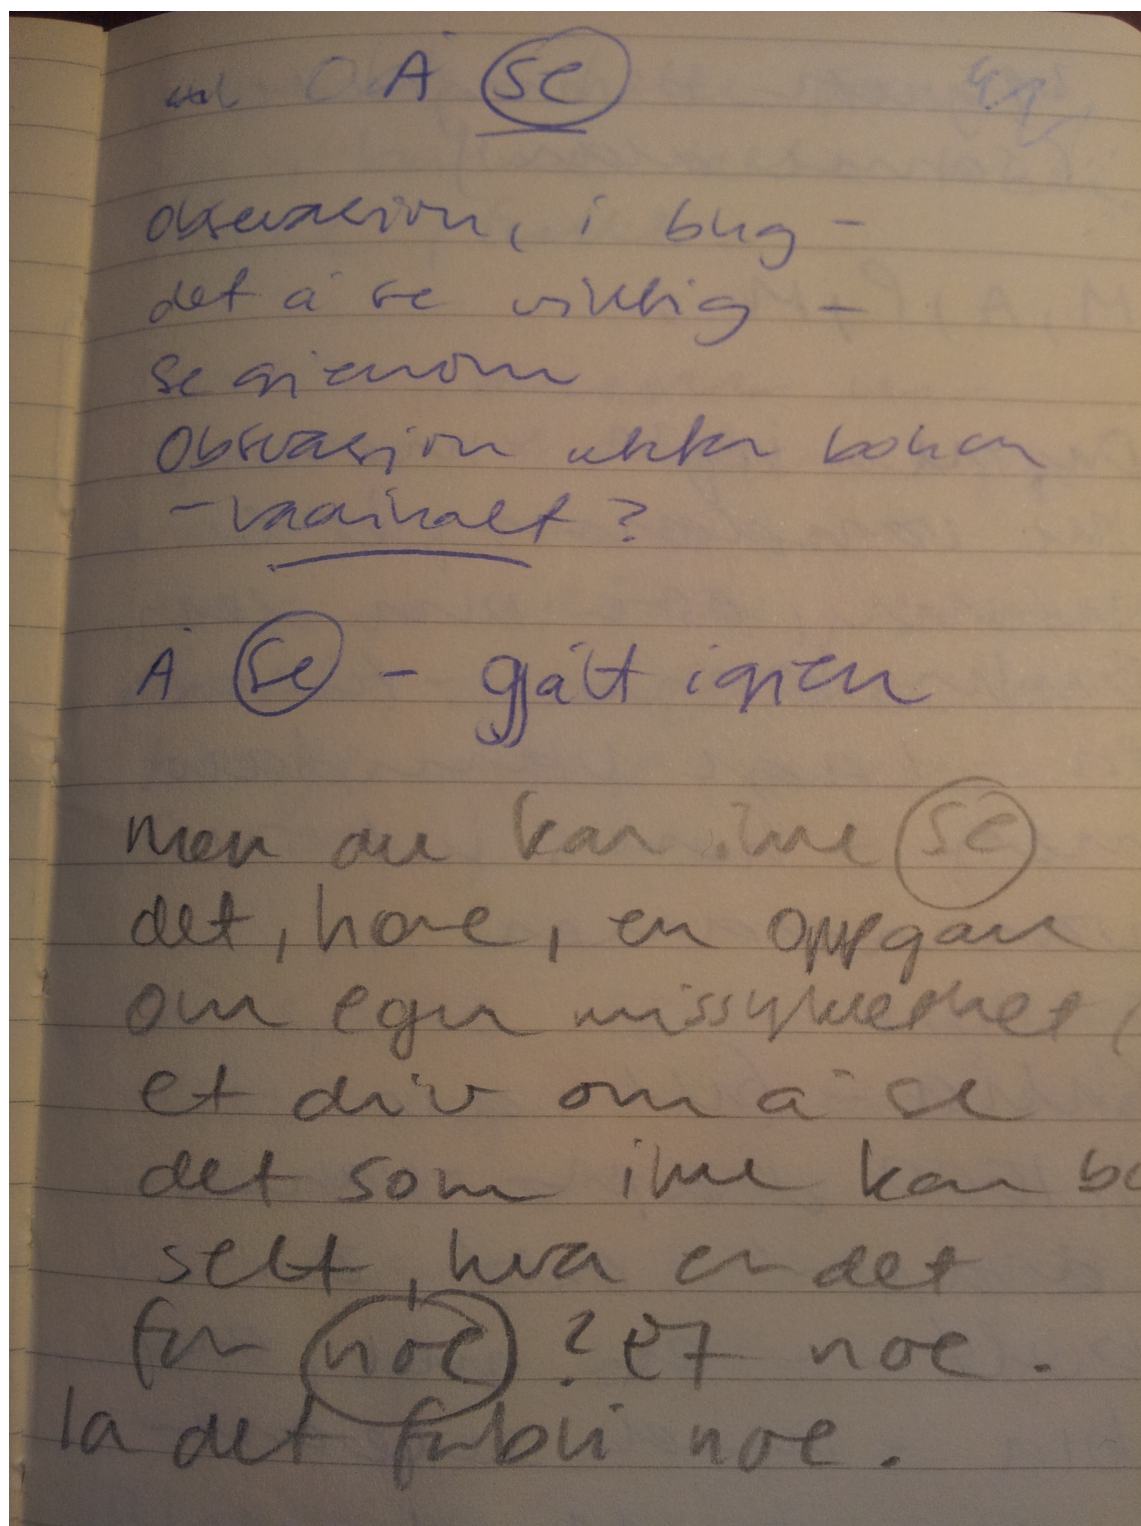 Å se
observasjon, i bug -
det å se viktig -
se gjenom
Observasjon etter boken
- ?
Å se - gått igjen
men du kan ikke se
det, høre, en oppgave
om egen missykkethet (
et driv om å se
det som ikke kan
sett, hva er det
for noe? et noe.
la det forbli noe.